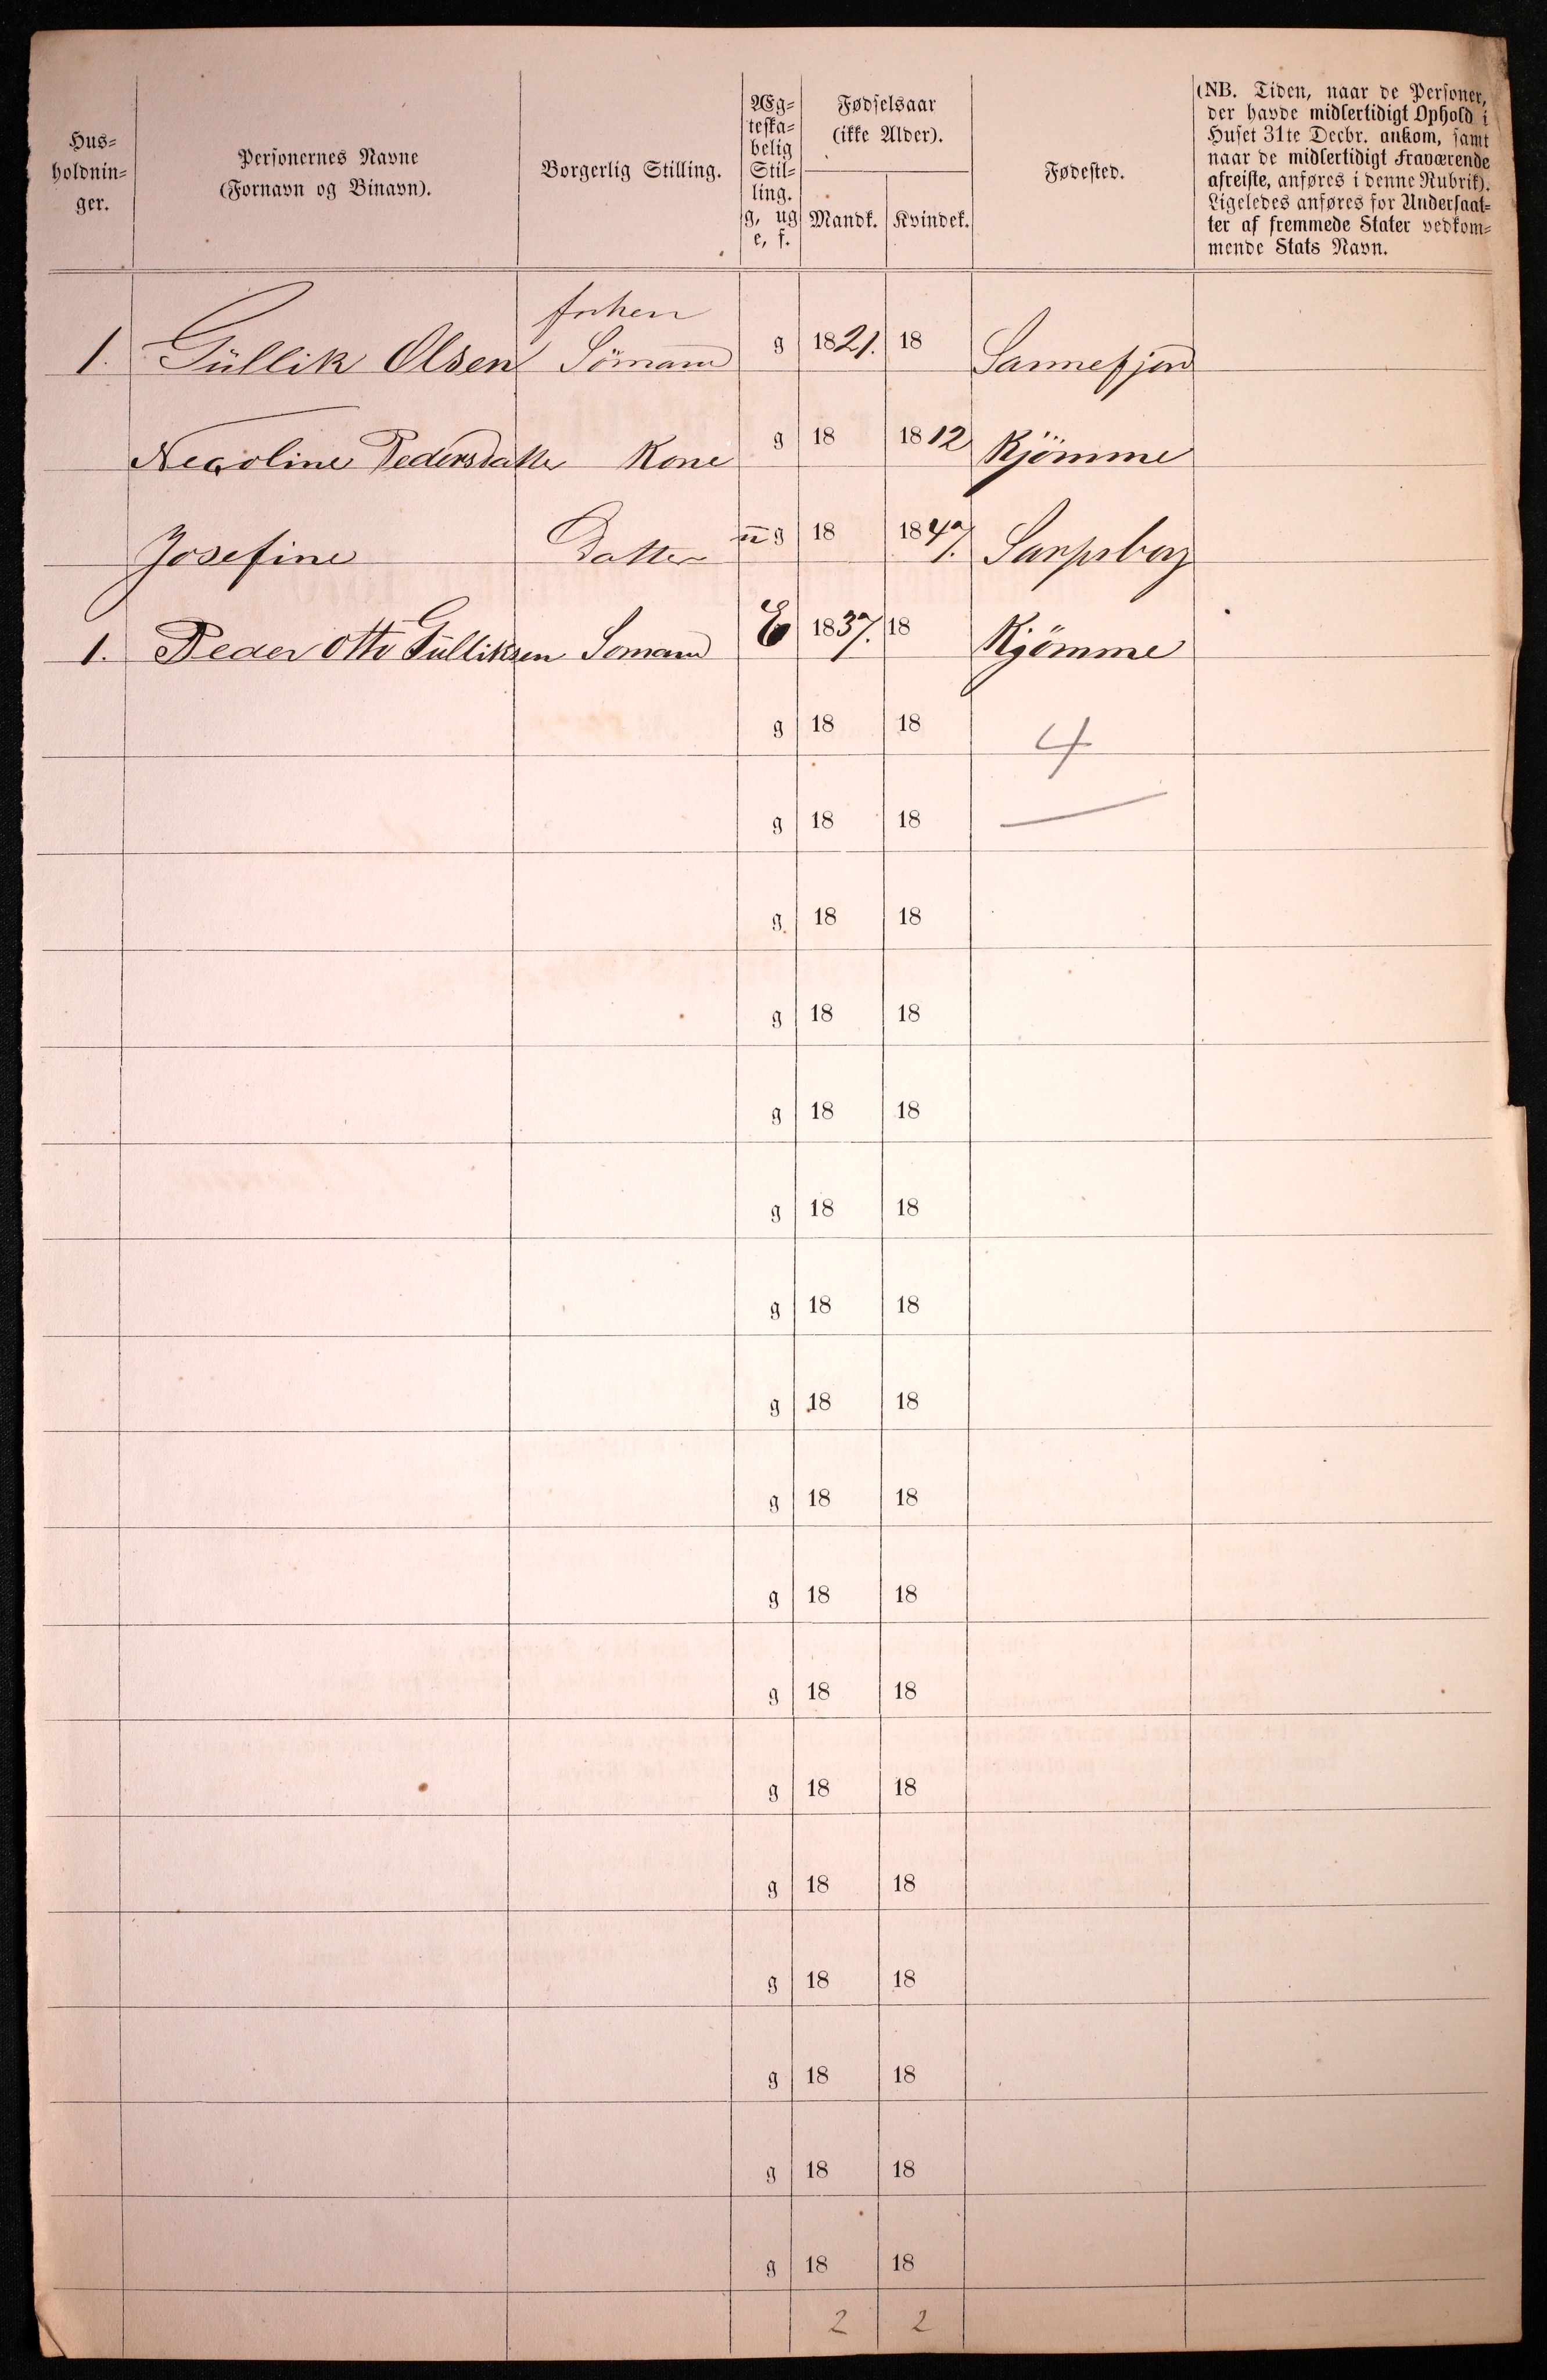 Hus-
holdnin-
ger.
Personernes Navne
(Fornavn og Binavn).
Borgerlig Stilling.
Æg-
teska-
belig
Stil-
ling.
g, ug
e, f.
Fødselsaar
(ikke Alder).
Mandk. Kvindek.
Fødested.
(NB. Tiden, naar de Personer,
der havde midlertidigt Ophold i
Huset 31te Decbr. ankom, samt
naar de midlertidigt Fraværende
afreiste, anføres i denne Rubrik).
Ligeledes anføres for Undersaat-
ter af fremmede Stater vedkom-
mende Stats Navn.
1. Güllik Olsen Sömand g 1821. 18 Sannefjord
Pedersdatter Kone g 18 1812 Kjömme
Josefine Datter ug 18 1847. Sarpsborg
1. Peder Otto Gülliksen Somand E 1837. 18 Kjömme
g 18 18 4
g 18 18
g 18 18
g 18 18
g 18 18
g 18 18
g 18 18
g 18 18
g 18 18
g 18 18
g 18 18
g 18 18
g 18 18
g 18 18
g 18 18
g 18 18
g 18 18
2 2